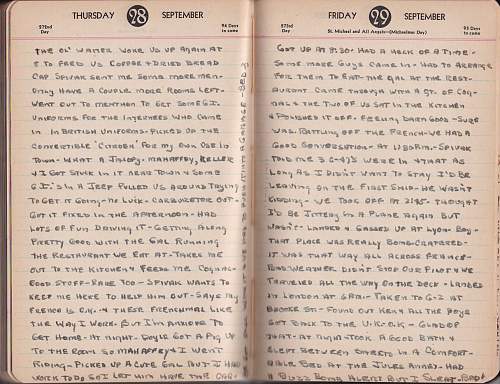 THURSDAY 28 SEPTEMBER
272nd Day
94 Days to come
THE OL' WAITER WOKE US UP AGAIN AT
8 TO FEED US COFFEE & DRIED BREAD
CAP. SPIVAK SENT ME SOME MORE MEN-
ONLY HAVE A COUPLE MORE ROOMS LEFT-
WENT OUT TO MENTHON TO GET SOME G.I.
UNIFORMS FOR THE INTERNEES WHO CAME
IN IN BRITISH UNIFORMS-PICKED UP THE
CONVERTIBLE 'CITROEN' FOR MY OWN USE IN
TOWN-WHAT A JALOPY-MAHAFFEY, KELLER
& I GOT STUCK IN IT NEAR TOWN & SOME
G.I.'S IN A JEEP PULLED US AROUND TRYING
TO GET IT GOING-NO LUCK-CARBURETOR OUT-
GOT IT FIXED IN THE AFTERNOON-HAD
LOTS OF FUN DRIVING IT-GETTING ALONG
PRETTY GOOD WITH THE GAL RUNNING
THE RESTAURANT WE EAT AT-TAKES ME
OUT TO THE KITCHEN & FEEDS ME COGNAC-
GOOD STUFF-RARE TOO-SPIVAK WANTS TO
KEEP ME HERE TO HELP HIM OUT-SAYS MY
FRENCH IS O.K.-& THESE FRENCHMAN LIKE
THE WAY I WORK-BUT I'M ANXIOUS TO
GET HOME-AT NIGHT-DOYLE GOT A PIG UP
TO THE ROOM SO MAHAFFEY & I WENT
RIDING-PICKED UP A CUTE GAL BUT I HAD
WORK TO DO SO I LET HIM HAVE THE CAR-
FRIDAY 29 SEPTEMBER
273rd Day
93 Days to come
St. Michael and All Angels—(Michaelmas Day)
GOT UP AT 8:30-HAD A HECK OF A TIME-
SOME MORE GUYS CAME IN-HAD TO ARRANGE
FOR THEM TO EAT-THE GAL AT THE REST-
AURANT CAME THROUGH WITH A QT. OF COG-
NAC & THE TWO OF US SAT IN THE KITCHEN
& POLISHED IT OFF-FEELING DARN GOOD-SURE
WAS RATTLING OFF THE FRENCH-WE HAD A
GOOD CONVERSATION-AT 1:30PM-SPIVAK
TOLD ME 3 C-47'S WERE IN & THAT AS
LONG AS I DIDN'T WANT TO STAY I'D BE
LEAVING ON THE FIRST SHIP-HE WASN'T
KIDDING-WE TOOK OFF AT 2:15-THOUGHT
I'D BE JITTERY IN A PLANE AGAIN BUT
WASN'T-LANDED & GASSED UP AT LYON-BOY-
THAT PLACE WAS REALLY BOMB-CRATERED-
IT WAS THAT WAY ALL ACROSS FRANCE-
BAD WEATHER DIDN'T STOP OUR PILOT & WE
TRAVELED ALL THE WAY ON THE DECK-LANDED
IN LONDON AT 6PM-TAKEN TO G-2 AT
BROOKE ST-FOUND OUT KEN & ALL THE BOYS
GOT BACK TO THE U.K. O.K.-GLAD OF
THAT-AT NIGHT-TOOK A GOOD BATH &
SLEPT BETWEEN SHEETS IN A COMFORT-
ABLE BED AT THE JULES ANNEX-HAD
A BUZZ BOMB ALERT BUT I SWEAT